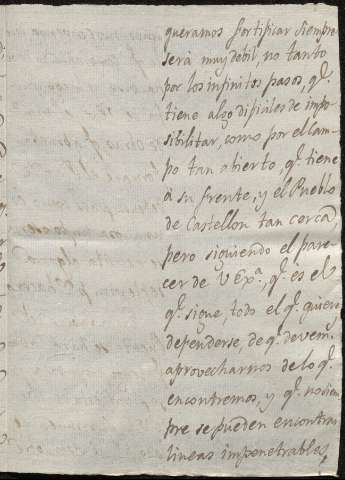 queramos fortificar siempre
será muy debil, no tanto
por los infinitos pasos, q.e
tiene algo dificiles de impo-
sibilitar, como por el cam-
po tan abierto, q.e tiene
á su frente, y el Pueblo
de Castellon tan cerca,
pero siguiendo el pare-
cer de V Ex.a, q.e es el
q.e sigue, todo el q.e quiere
defenderse, de q.e devemos
aprovecharnos de lo q.e
encontremos, y q.e no siem-
pre se pueden encontrar
lineas impenetrables,